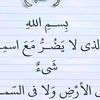 بِسمِ اللهِ
الذى لا يَضُرُّ مَعَ اسمِهِ
شَىءٌ
الأرضِ وَلا فى السَّما